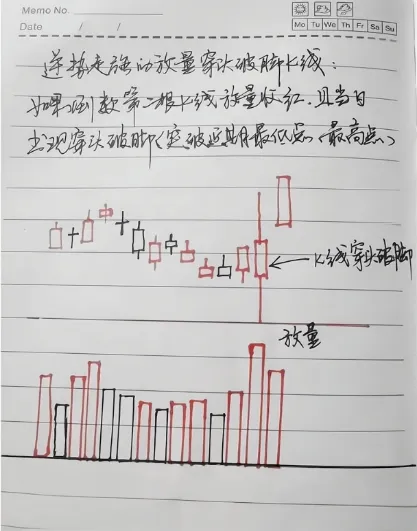 Memo No.
Mo Tu We Th Fr Sa Su
Date / /
逆势走强的放量穿头破脚K线:
如果倒数第二根K线放量收红,且当日
出现穿头破脚(突破近期最低点、最高点)
K线穿头破脚
放量